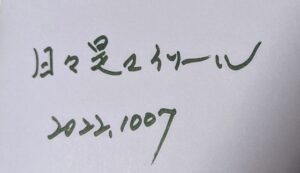 日々是々イリール
2022.1007